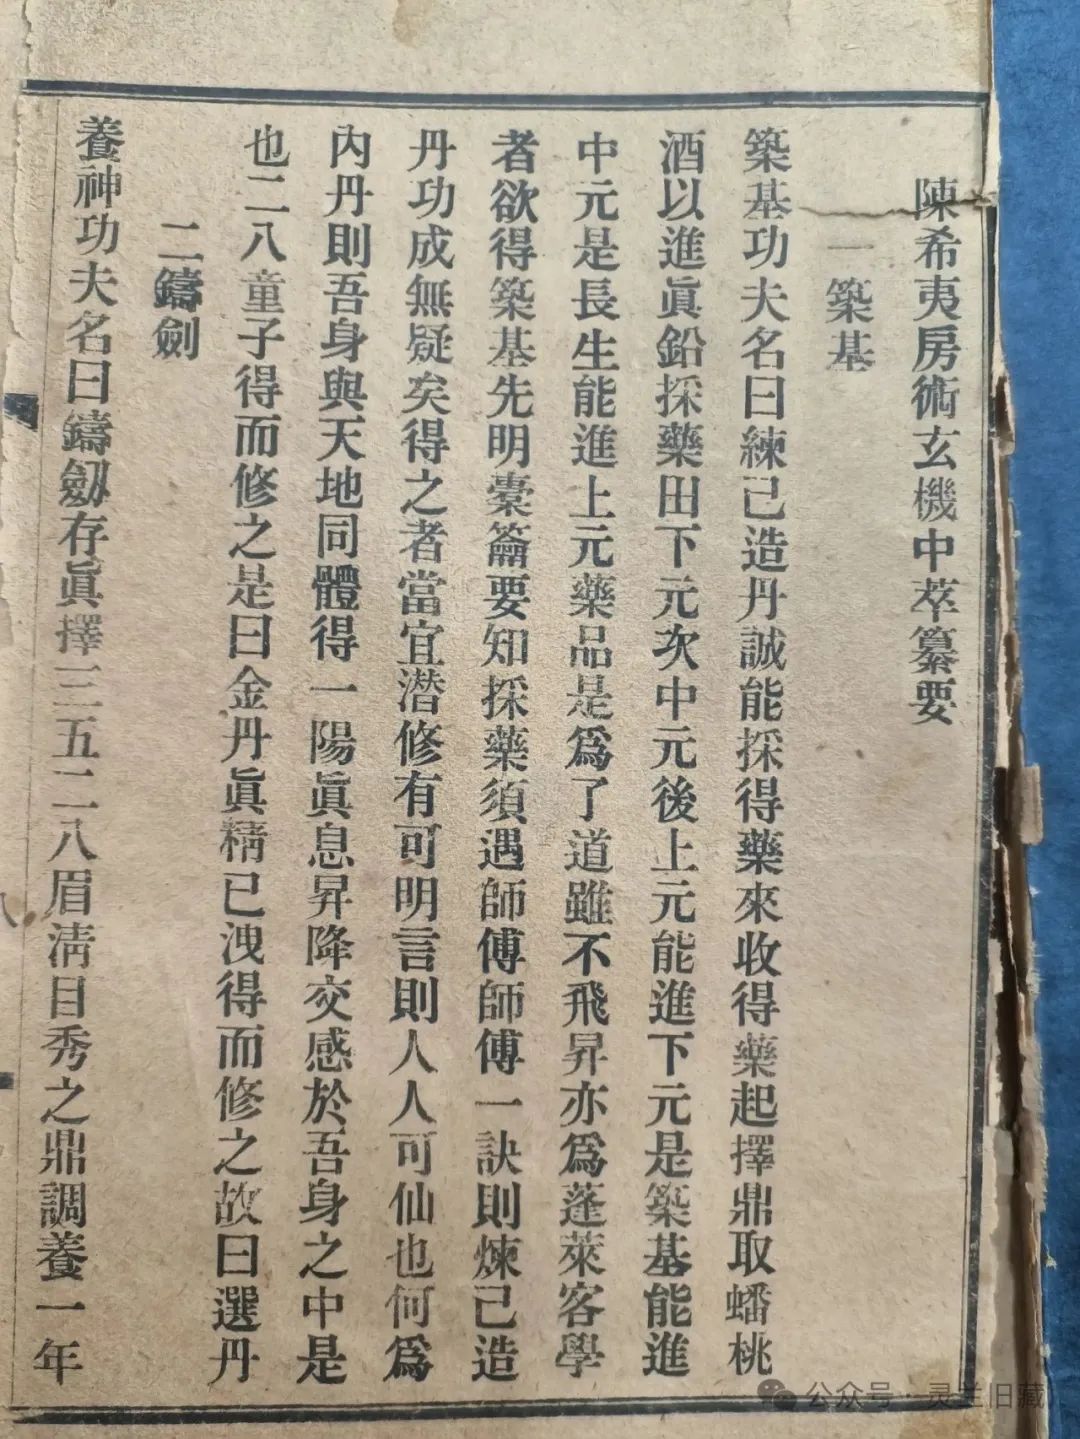 陳希夷房術玄機中萃纂要
一築基
築基功夫名曰練己造丹誠能採得藥來收得藥起擇鼎取蟠桃
酒以進眞鉛採藥田下元次中元後上元能進下元是築基能進
中元是長生能進上元藥品是爲了道雖不飛昇亦爲蓬萊客學
者欲得築基先明橐籥要知採藥須遇師傅師傅一訣則煉己造
丹功成無疑矣得之者當宜潛修有可明言則人人可仙也何爲
內丹則吾身與天地同體得一陽眞息昇降交感於吾身之中是
也二八童子得而修之是曰金丹眞精已洩得而修之故曰選丹
二鑄劍
養神功夫名曰鑄劔存眞擇三五二八眉淸目秀之鼎調養一年
八
公众号·灵主旧藏